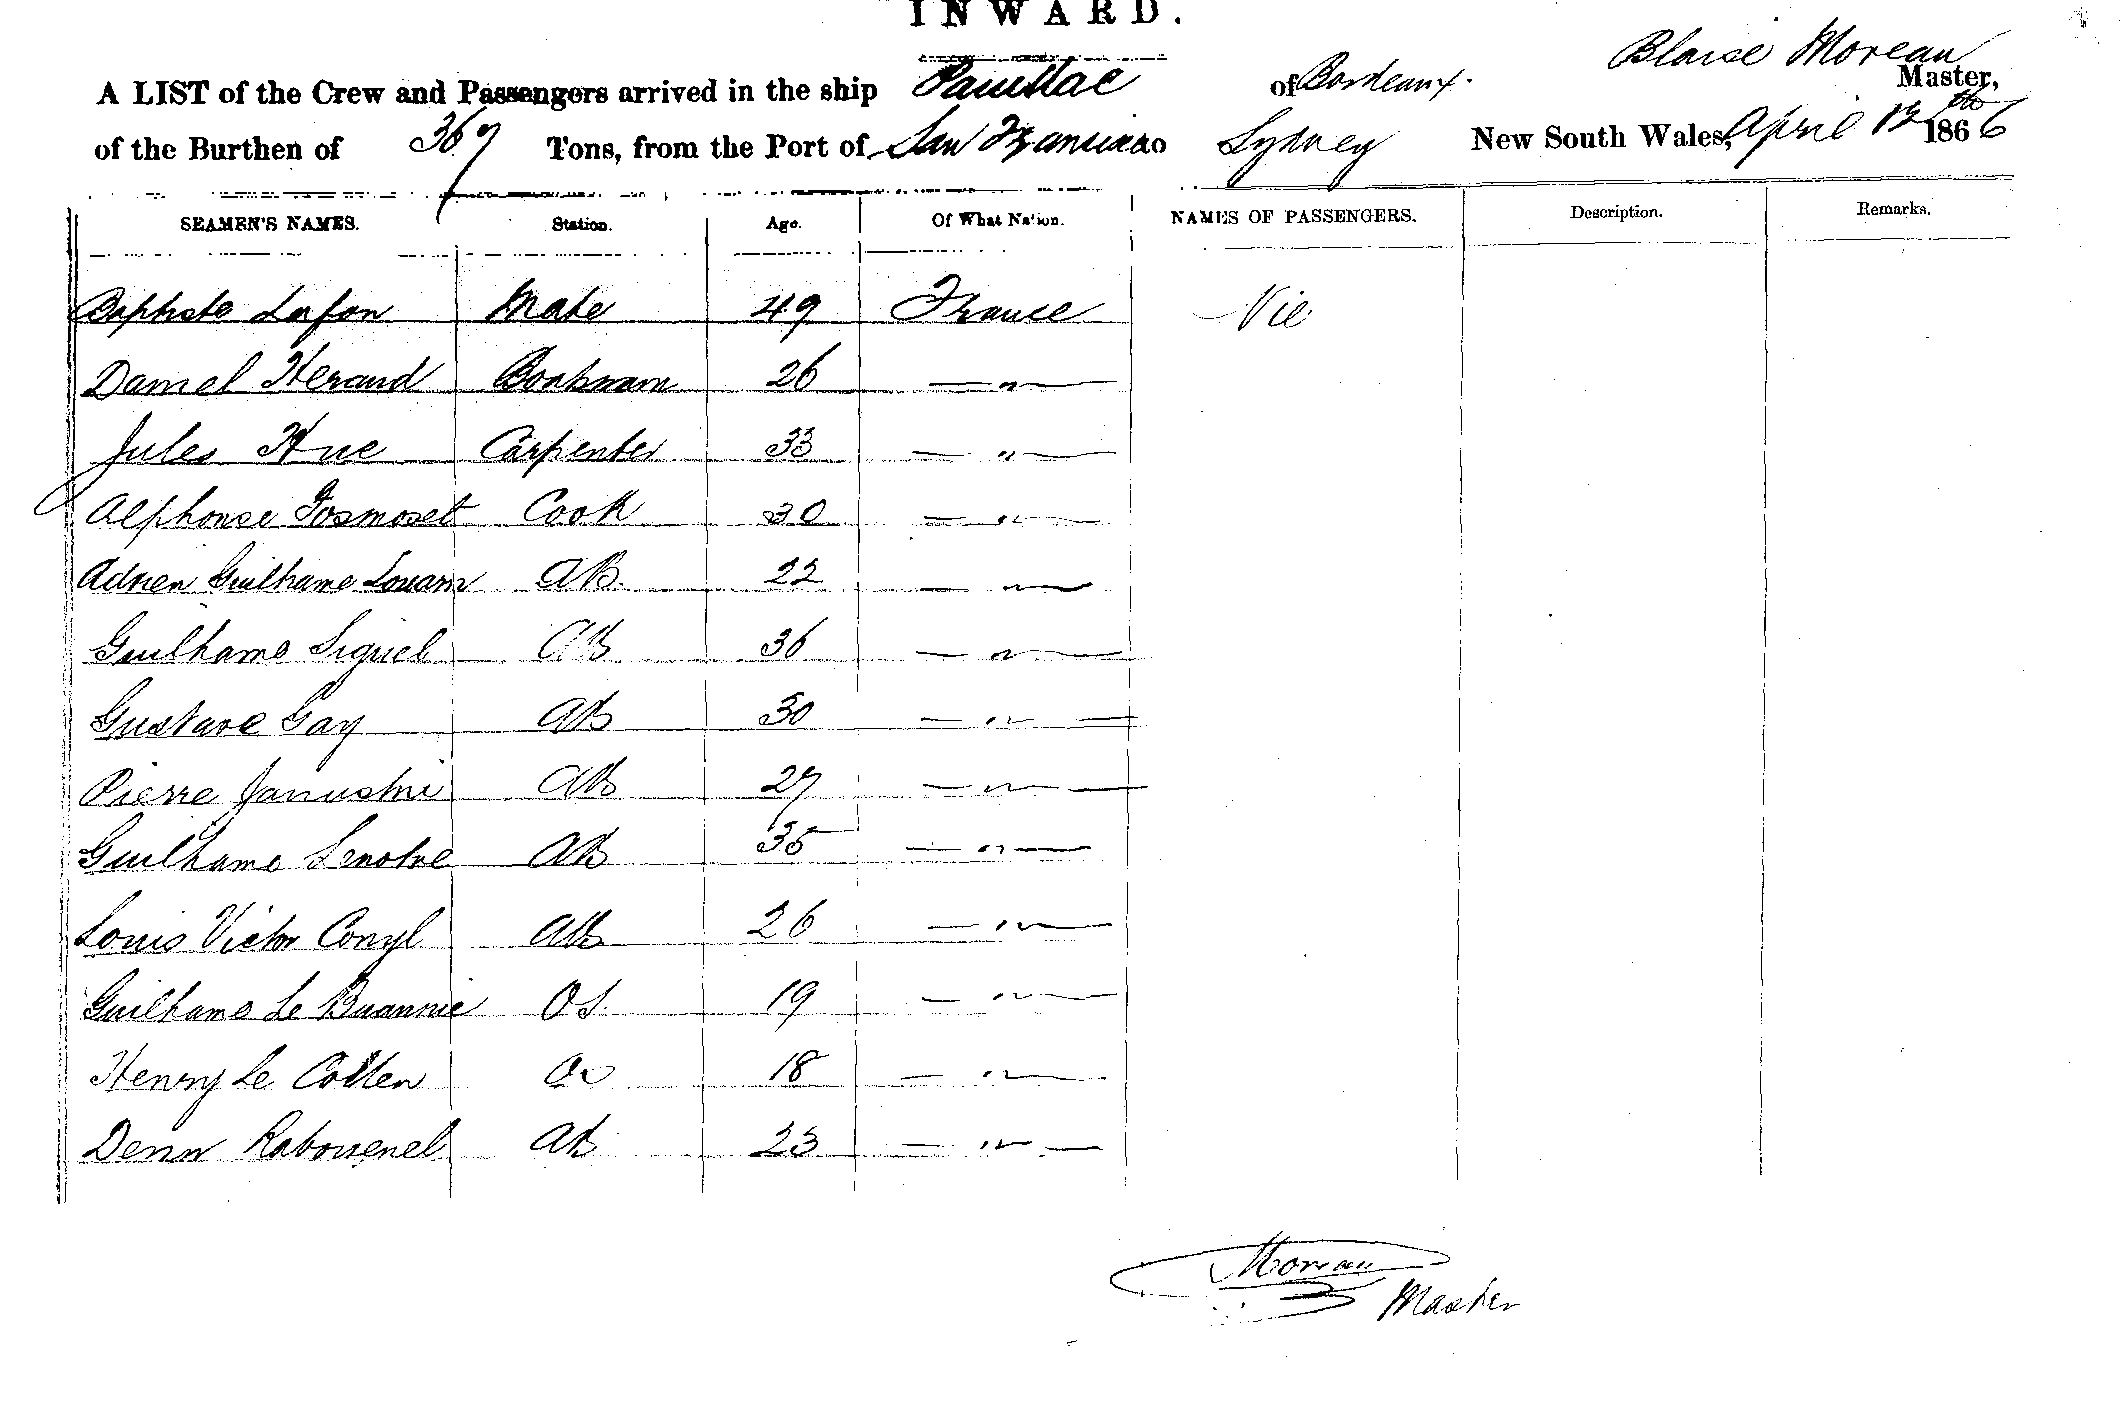 INWARD.
A LIST of the Crew and Passengers arrived in the ship Pauillac of Bordeaux. Blaise Moreau Master,
of the Burthen of 367 Tons, from the Port of San Francisco Sydney New South Wales, April 12th 1866
SEAMEN'S NAMES. Station. Age. Of What Nation. NAMES OF PASSENGERS. Description. Remarks.
Baptiste Lafon Mate 49 France Nil
Daniel Heraud Boatswain 26 — " —
Jules Hue Carpenter 33 — " —
Alphonse Cook 30 — " —
Adrien Guilhame Louarn AB. 22 — " —
Guilhame Siguel AB 36 — " —
Gustave Gay AB 30 — " —
Pierre AB 27 — " —
Guilhame Lenotre AB 35 — " —
Louis Victor Conyl AB 26 — " —
Guilhame Le Buannic OS. 19 — " —
Henry Le Collen OS 18 — " —
Denis AB 23 — " —
Moreau
Master